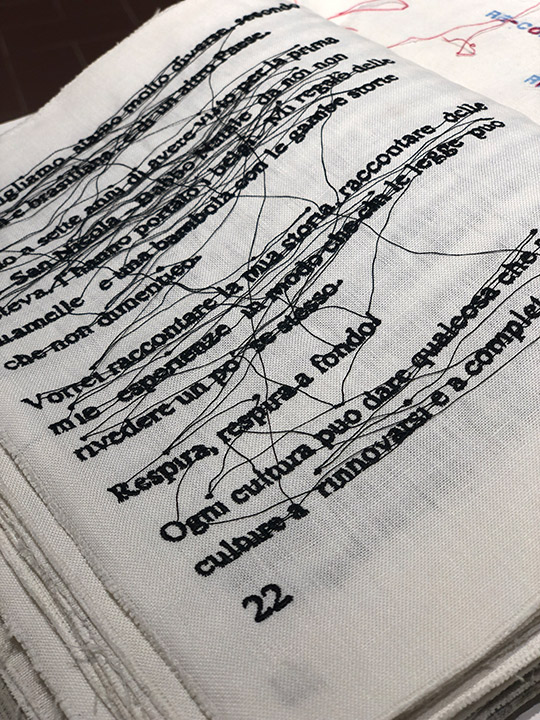 siamo molto diverse, secondo
e brasiliana, e di un altro Paese.
a sette anni di avere visto per la prima
San Nicola, Babbo Natale da noi non
l'hanno portato i belgi. Mi regalò delle
e una bambola con le gambe storte
che non dimentico.
Vorrei raccontare la mia storia, raccontare delle
mie esperienze in modo che chi le legge può
rivedere un po' se stesso.
Respira, respira a fondo!
Ogni cultura può dare qualcosa che
culture a rinnovarsi e a
22
RE-CO